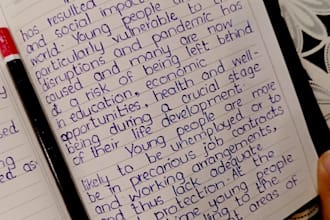 has resulted
and social impact
world. Young people are
particularly vulnerable to the
disruptions and pandemic has
caused and many are now
at a risk of being left behind
in education, economic
opportunities, health and well-
being during a crucial stage
of their life development.
Young people are more
likely to be unemployed or to
be in precarious job contracts
and working arrangements,
and thus lack adequate
protection. At the
young people
to the
areas of
sed
ed as